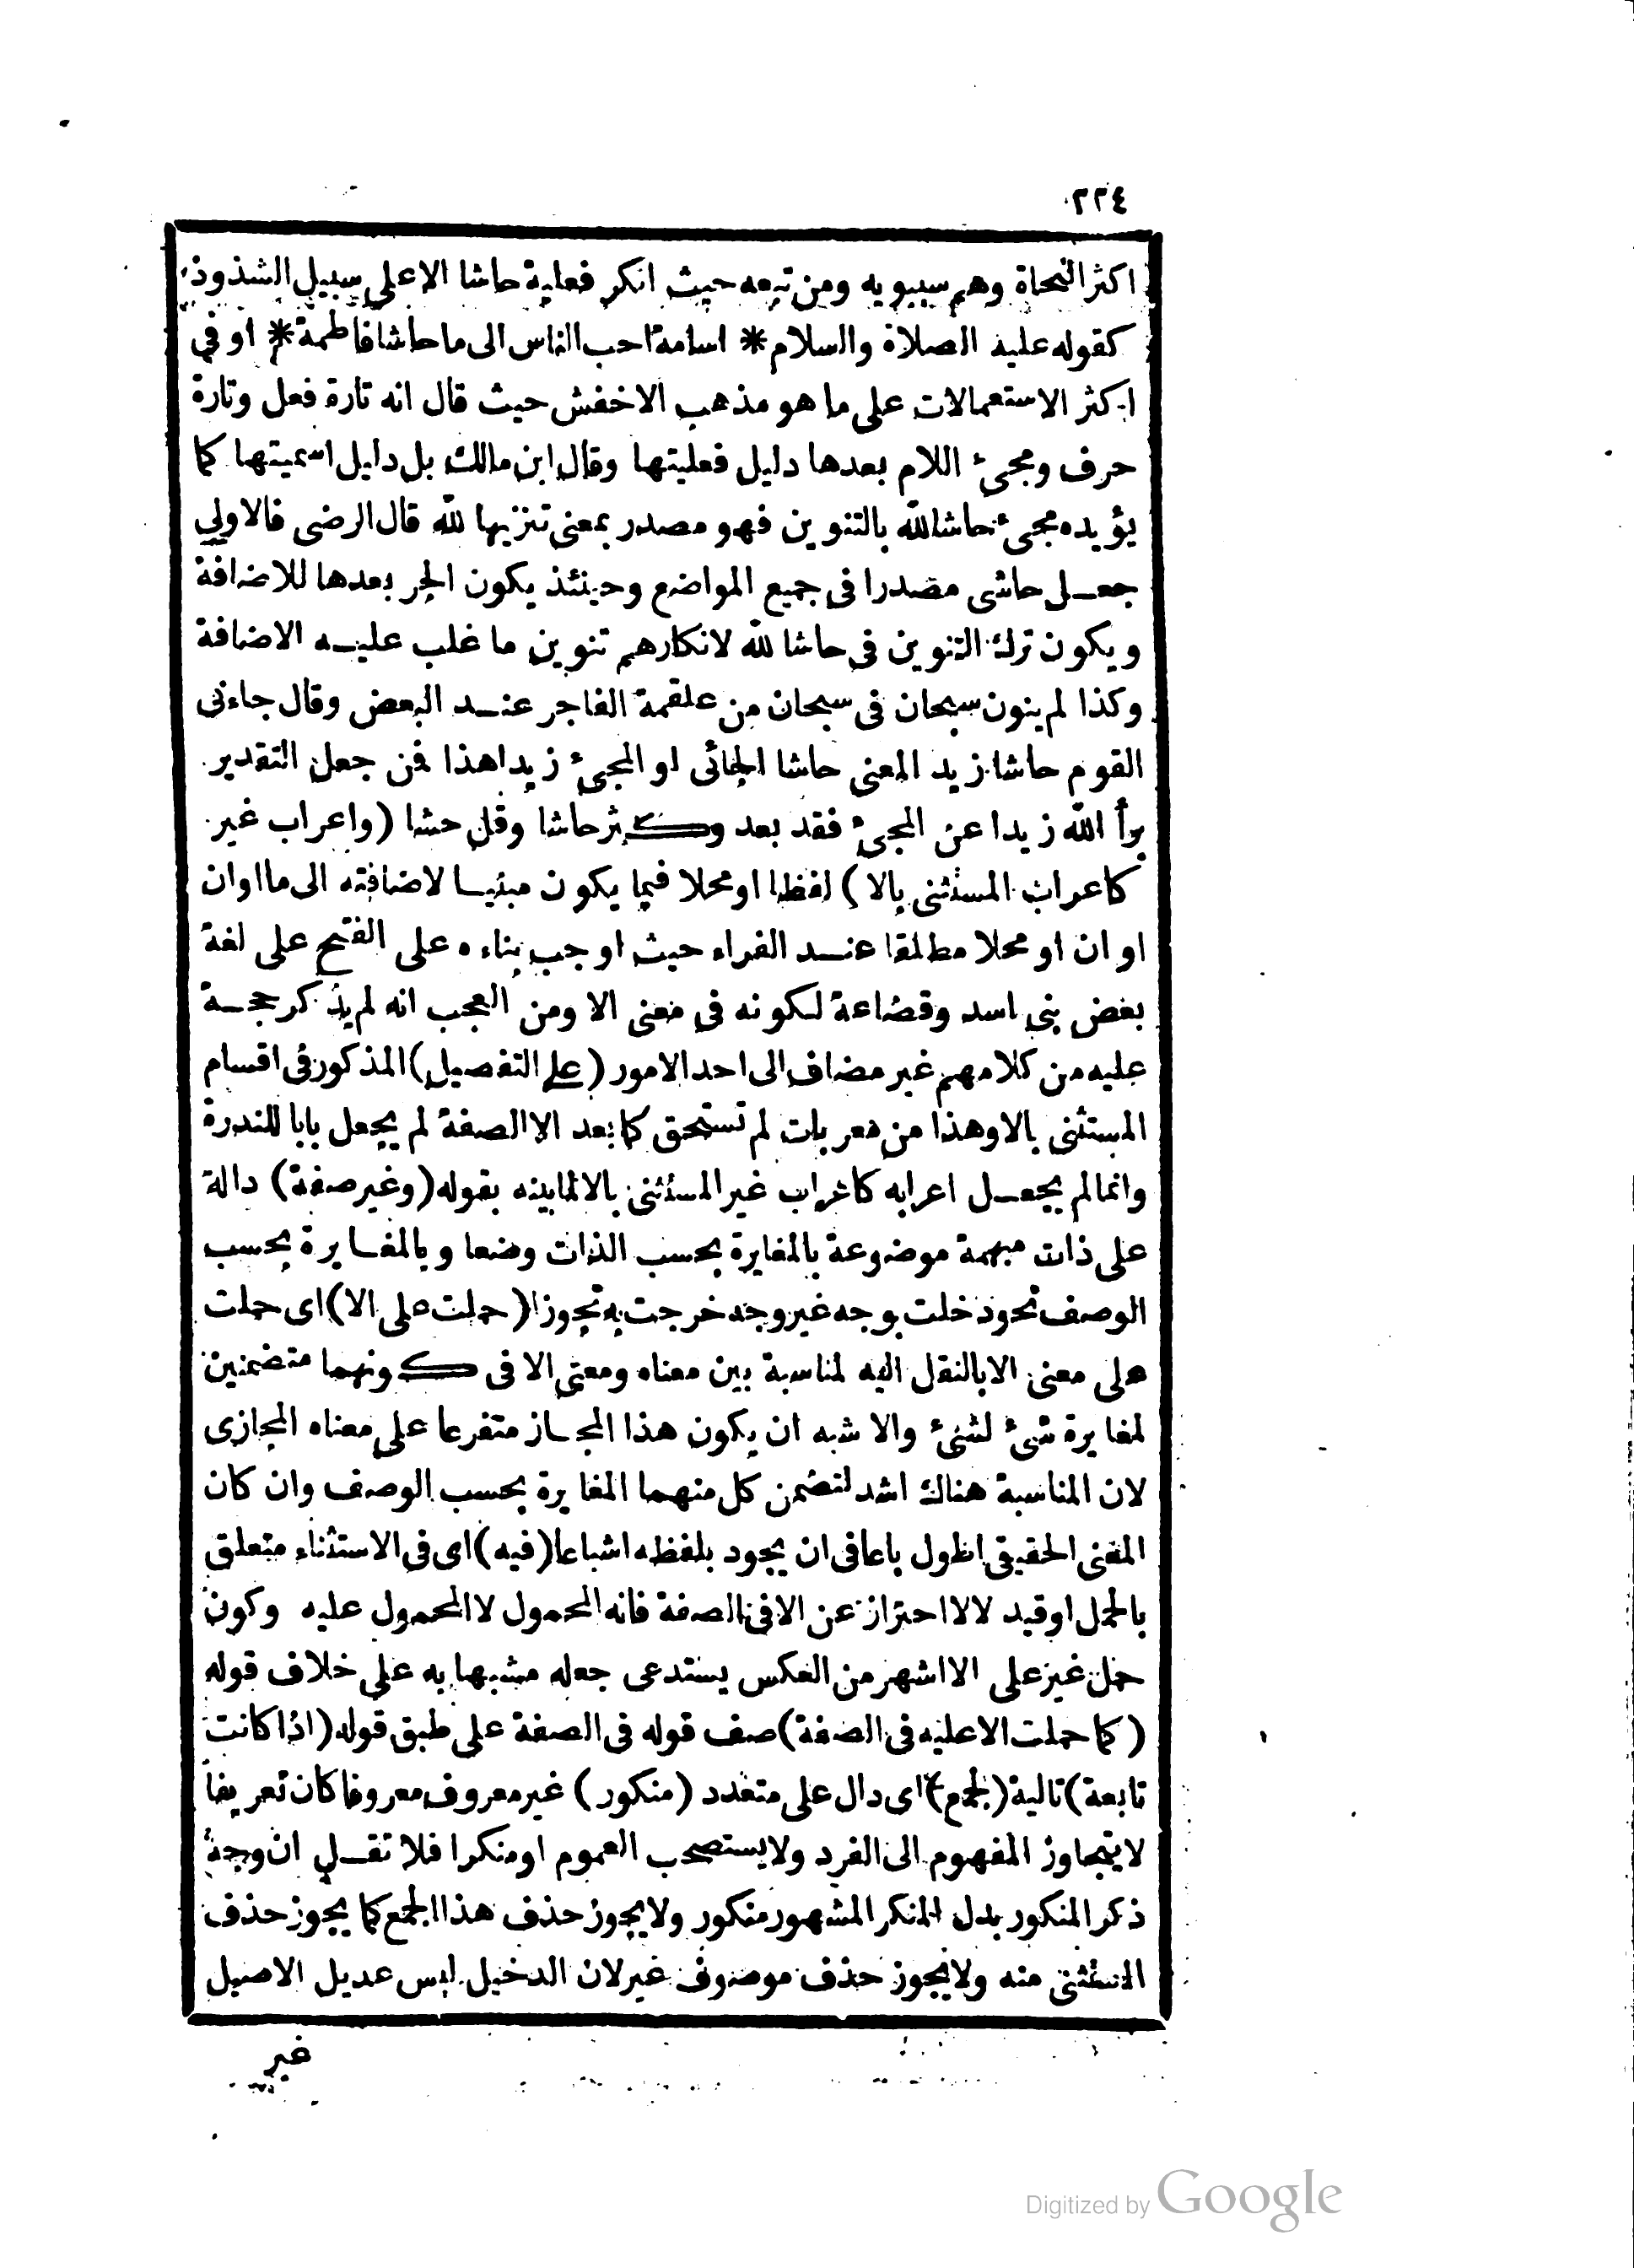 ٢٢٤
اكثر النحاة وهم سيبويه ومن تبعه حيث انكر فعلية حاشا الا على سبيل الشذوذ
كقوله عليه الصلاة والسلام * اسامة احب الناس الى ما حاشا فاطمة * او في
اكثر الاستعمالات على ما هو مذهب الاخفش حيث قال انه تارة فعل وتارة
حرف ومجئ اللام بعدها دليل فعليتها وقال ابن مالك بل دليل اسميتها كما
يؤيده مجئ حاشا لله بالتنوين فهو مصدر بمعنى تنزيها لله قال الرضى فالاولى
جعل حاشى مصدرا فى جميع المواضع وحينئذ يكون الجر بعدها للاضافة
ويكون ترك التنوين فى حاشا لله لانكارهم تنوين ما غلب عليه الاضافة
وكذا لم ينون سبحان فى سبحان من علقمة الفاجر عند البعض وقال جاءنى
القوم حاشا زيد المعنى حاشا الجائى او المجئ زيدا هذا فمن جعل التقدير
برأ الله زيدا عن المجئ فقد بعد وكثر حاشا وقل حشا (واعراب غير
كاعراب المستثنى بالا) لفظا او محلا فيما يكون مبنيا لاضافته الى ما اوان
او ان او محلا مطلقا عند الفراء حيث اوجب بناءه على الفتح على لغة
بعض بنى اسد وقضاعة لكونه فى معنى الا ومن العجب انه لم يذكر حجة
عليه من كلامهم غير مضاف الى احد الامور (على التفصيل) المذكور فى اقسام
المستثنى بالا وهذا من معربات لم تستحق كما بعد الا الصفة لم يجعل بابا للندرة
وانما لم يجعل اعرابه كاعراب غير المستثنى بالا لما بينه بقوله (وغير صفة) دالة
على ذات مبهمة موضوعة بالمغايرة بحسب الذات وضعا وبالمغايرة بحسب
الوصف نحو دخلت بوجه غير وجه خرجت به تجوزا (حملت على الا) اى حملت
على معنى الا بالنقل اليه لمناسبة بين معناه ومعنى الا فى كونهما متضمنين
لمغايرة شئ لشئ والاشبه ان يكون هذا المجاز متفرعا على معناه المجازى
لان المناسبة هناك اشد لتضمن كل منهما المغايرة بحسب الوصف وان كان
المعنى الحقيقى اطول باعا فى ان يجود بلفظه اشباعا (فيه) اى فى الاستثناء متعلق
بالحمل او قيد لالا احتراز عن الا فى الصفة فانه المحمول لا المحمول عليه وكون
حمل غير على الا اشهر من العكس يستدعى جعله مشبها به على خلاف قوله
(كما حملت الا عليه فى الصفة) صف قوله فى الصفة على طبق قوله (اذا كانت
تابعة) تالية (لجمع) اى دال على متعدد (منكور) غير معروف معروفا كان تعريفا
لا يتجاوز المفهوم الى الفرد ولا يستصحب العموم او منكرا فلا تقل ان وجه
ذكر المنكور بدل المنكر المشهور منكور ولا يجوز حذف هذا الجمع كما يجوز حذف
المستثنى منه ولا يجوز حذف موصوف غير لان الدخيل ليس عديل الاصيل
غير
Digitized by Google